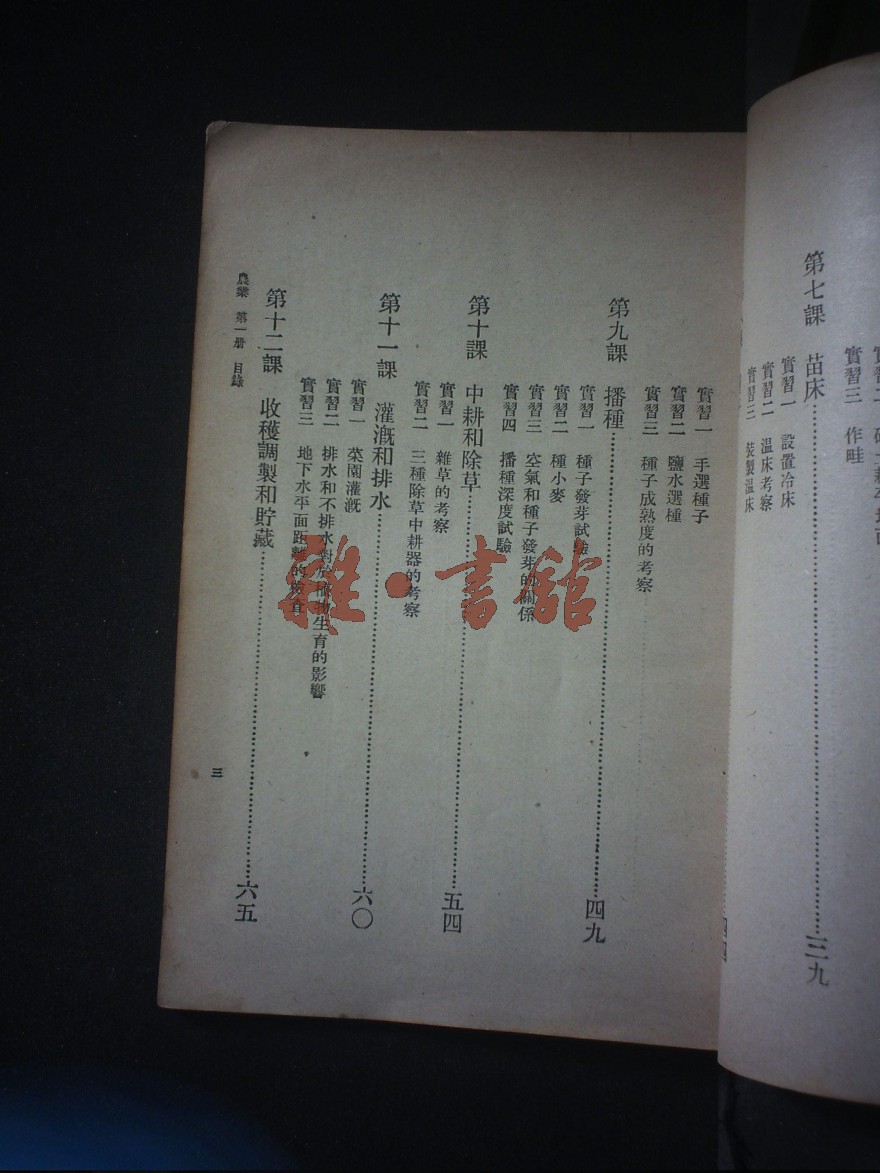 實習三 作畦
第七課 苗床 三九
實習一 設置冷床
實習二 溫床考察
實習三 裝製溫床
實習一 手選種子
實習二 鹽水選種
實習三 種子成熟度的考察
第九課 播種 四九
實習一 種子發芽試驗
實習二 種小麥
實習三 空氣和種子發芽的關係
實習四 播種深度試驗
第十課 中耕和除草 五四
實習一 雜草的考察
實習二 三種除草中耕器的考察
第十一課 灌漑和排水 六〇
實習一 菜園灌漑
實習二 排水和不排水對於植物生育的影響
實習三 地下水平面距離的檢查
第十二課 收穫調製和貯藏 六五
農業 第一册 目錄
三
雜·書館